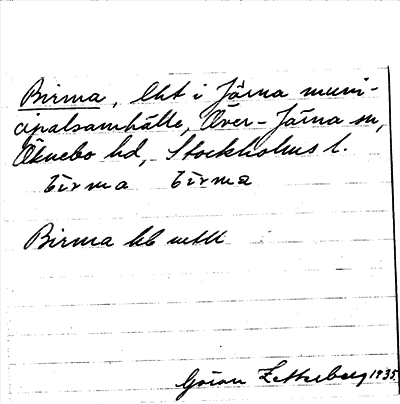 Birma, lht i Järna muni-
cipalsamhälle, Över-Järna sn,
Öknebo hd, Stockholms l.
birma birma
Birma
Göran Zetterberg 1935